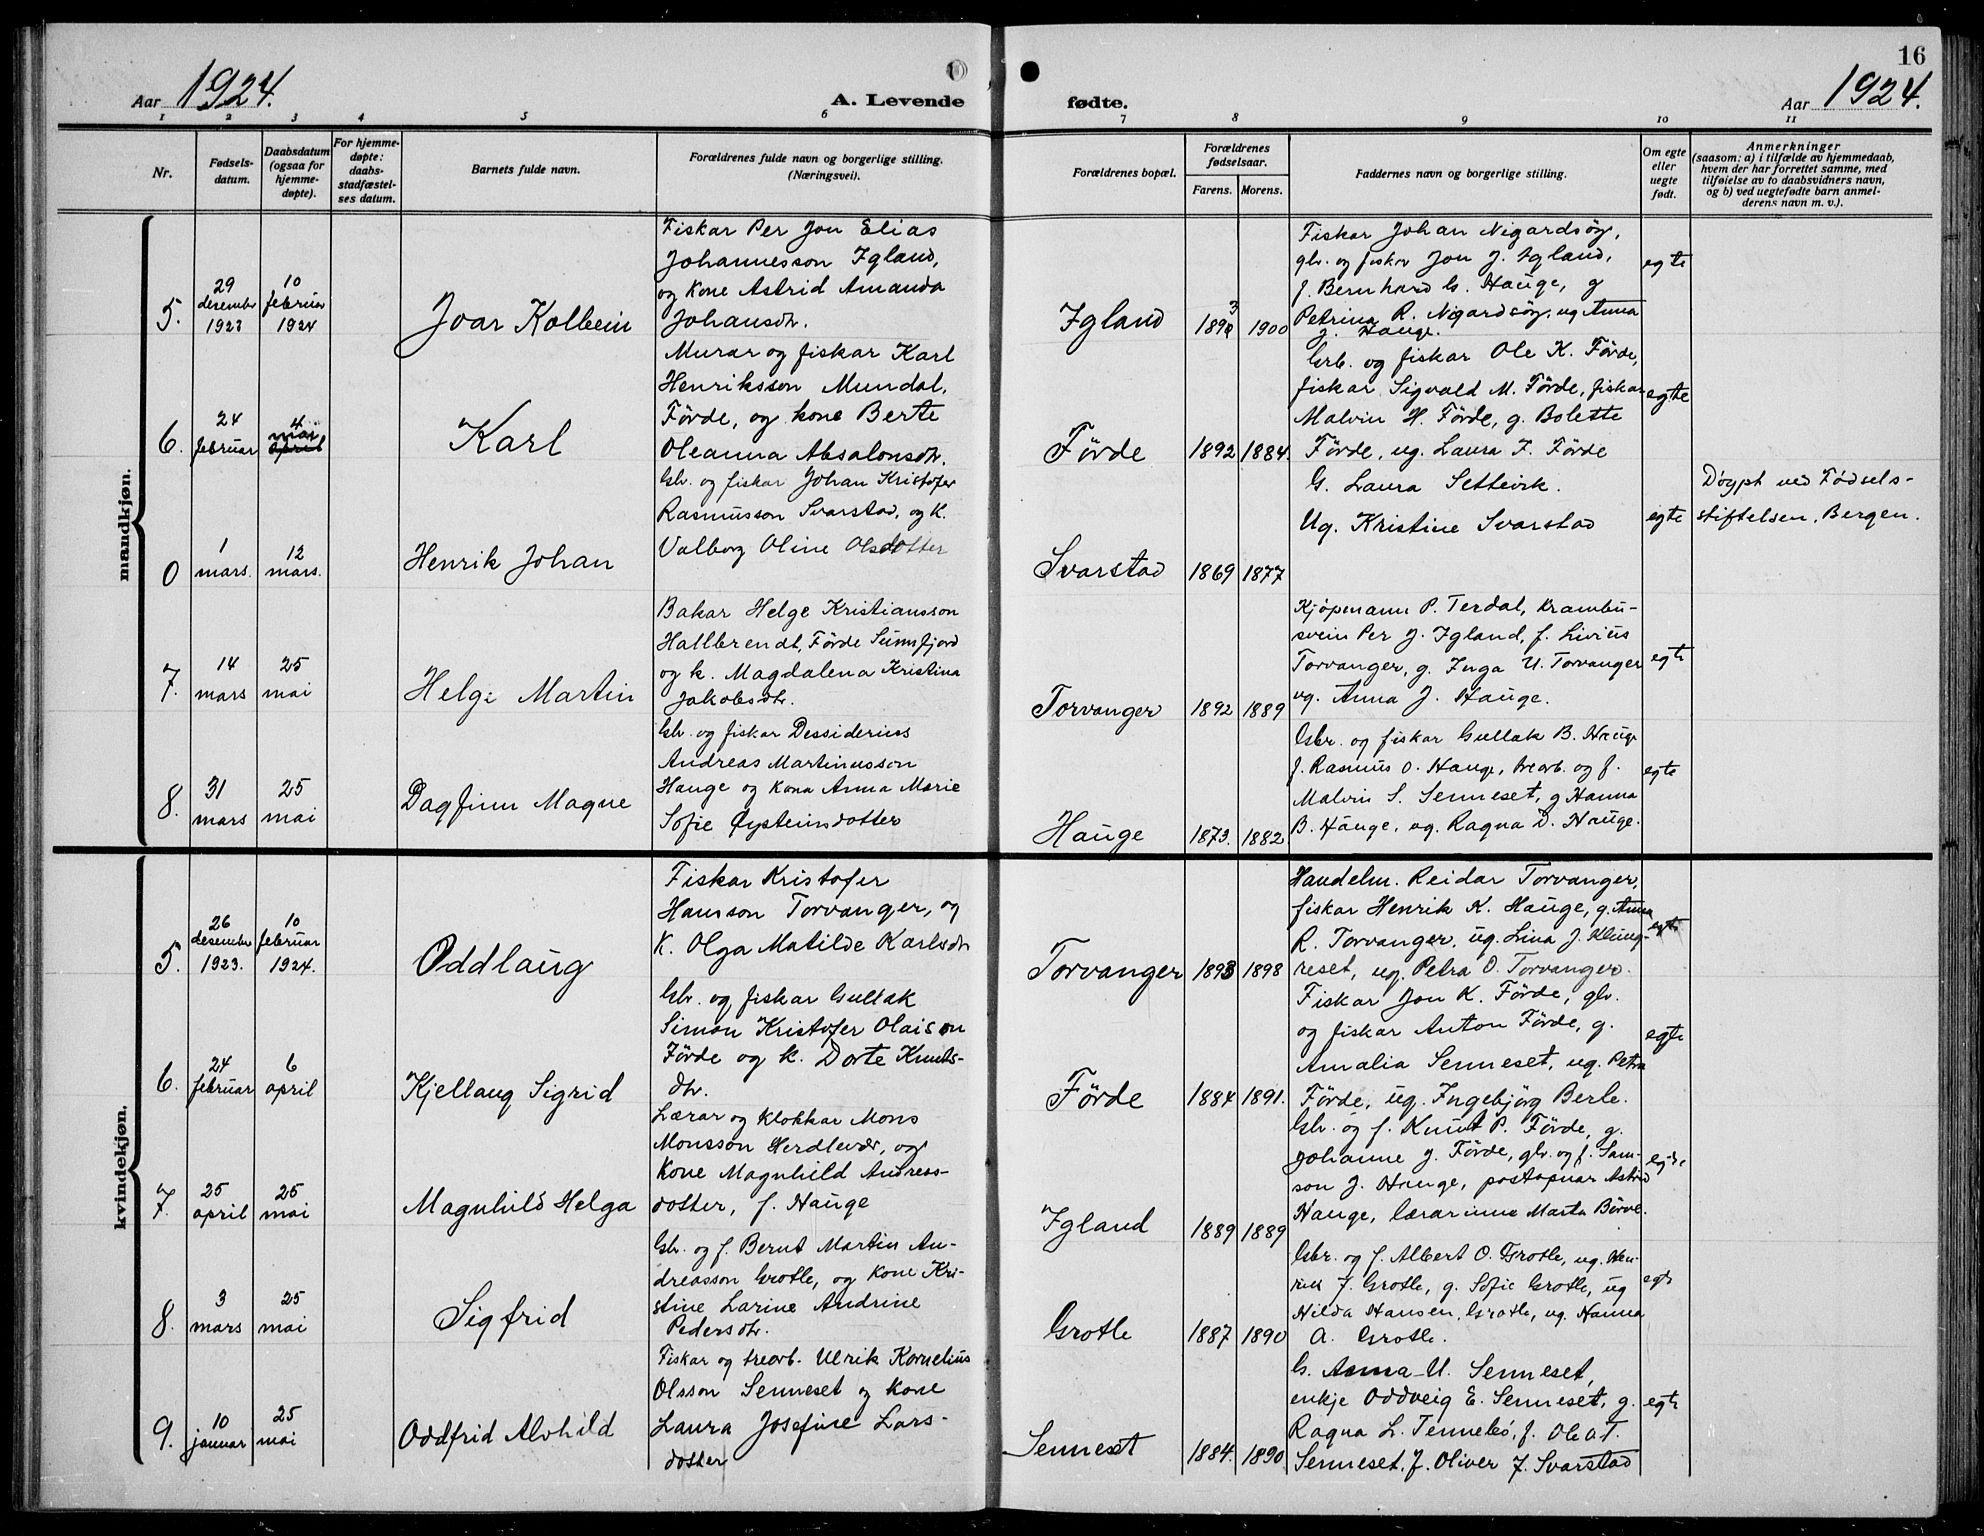 16
Aar 1924.
A. Levende fødte.
Aar 1924.
1 2 3 4 5 6 7 8 9 10 11
Nr.
Fødsels-
datum.
Daabsdatum
(ogsaa for
hjemme-
døpte).
For hjemme-
døpte:
daabs-
stadfæstel-
ses datum.
Barnets fulde navn.
Forældrenes fulde navn og borgerlige stilling.
(Næringsvei).
Forældrenes bopæl.
Forældrenes
fødselsaar.
Farens. Morens.
Faddernes navn og borgerlige stilling.
Om egte
eller
uegte
født.
Anmerkninger
(saasom: a) i tilfælde av hjemmedaab,
hvem der har forrettet samme, med
tilføielse av to daabsvidners navn,
og b) ved uegtefødte barn anmel-
derens navn m. v.).
mandkjøn.
5.
29
desember
1923
10
februar
1924
Joar Kolbein
Fiskar Per Jon Elias
Johannesson Igland,
og kone Astrid Amanda
Johansdtr.
Igland
1893 1900
Fiskar Johan Nigardsøy,
gbr. og fiskar Jon J. Igland,
f. Bernhard G. Hauge, g
Petrina R. Nigardsøy, ug Anna
J. Hauge.
egte
6.
24
februar
4
mars
april
Karl
Murar og fiskar Karl
Henriksson Mundal,
Förde, og kone Berte
Oleanna Absalonsdtr.
Förde
1892 1884.
Grb. og fiskar Ole K. Förde,
fiskar Sigvald M. Förde, fiskar
Malvin H. Förde, g. Bolette
Förde, ug. Laura F. Förde
egte
0
1
mars.
12
mars.
Henrik Johan
Gbr. og fiskar Johan Kristofer
Rasmusson Svarstad, og k.
Valborg Oline Olsdotter
Svarstad
1869 1877
G. Laura Settevik.
Ug. Kristine Svarstad
egte
Døypt ved Fødsels-
stiftelsen, Bergen.
7.
14
mars
25
mai
Helge Martin
Bakar Helge Kristiansson
Hallbrendt, Förde Sunnfjord
og k. Magdalena Kristina
Jakobsdtr.
Torvanger
1892 1889
Kjøpmann P. Terdal, krambu-
svein Per J. Igland, f. Livius
Torvanger, g. Inga U. Torvanger
ug. Anna J. Hauge.
egte
8.
31
mars
25
mai
Dagfinn Magne
Gbr. og fiskar Dessiderius
Andreas Martinusson
Hauge og kona Anna Marie
Sofie Øysteinsdotter
Hauge
1873. 1882
Gbr. og fiskar Gullak B. Hauge
f. Rasmus O. Hauge, trearb. og f.
Malvin S. Senneset, g Hanna
B. Hauge, ug. Ragna D. Hauge.
egte
kvindekjøn.
5.
26
desember
1923.
10
februar
1924.
Oddlaug
Fiskar Kristofer
Hansson Torvanger, og
K. Olga Matilde Karlsdtr
Torvanger
1893 1898
Handelm. Reidar Torvanger,
fiskar Henrik K. Hauge, g. Anna
R. Torvanger, ug. Lina J. Klung-
reset, ug. Petra O. Torvanger.
egte
6.
24
februar
6
april
Kjellaug Sigrid
Gbr. og fiskar Gullak
Simon Kristofer Olaison
Förde og k. Dorte Knuts-
dtr.
Förde
1884 1891.
Fiskar Jon K. Förde, gbr.
og fiskar Anton Förde, g.
Amalia Senneset, ug. Petra
Förde, ug. Ingebjörg Berle.
egte
7.
25
april
25
mai
Magnhild Helga
Lærar og klokkar Mons
Monsson Herdlevær, og
kone Magnhild Andreas-
dotter, f. Hauge
Igland
1889 1889
Gbr. og f. Knut P. Förde, g.
Johanne J. Förde, gbr. og f. Sam-
son J. Hauge, postopnar Astrid
Hauge, lærarinne Marta Börve.
egte
8.
3
mars
25
mai
Sigfrid
Gbr. og f. Bernt Martin An-
dreasson Grotle, og kone Kri-
stine Larine Andrine
Pedersdtr.
Grotle
1887 1890
Gbr. og f. Albert O. Grotle, ug. Hen-
rik J. Grotle, g. Sofie Grotle, ug
Hilda Hansen, Grotle, ug. Hanna
A. Grotle.
egte
9.
10
januar
25
mai
Oddfrid Alvhild
Fiskar og trearb. Ulrik Kornelius
Olsson Senneset og kone
Laura Josefine Lars-
dotter
Senneset
1884. 1890.
G. Anna U. Senneset,
enkje Oddveig E. Senneset, g.
Ragna L. Tennebö, f. Ole T.
Senneset, f. Oliver J. Svarstad
egte